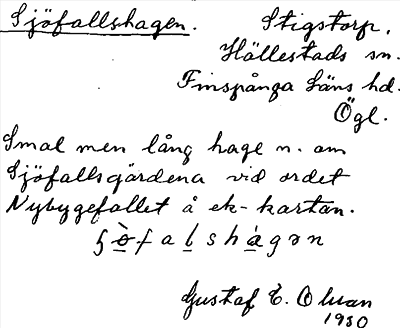 Sjöfallshagen. Stigstorp.
Hällestads sn.
Finspånga Läns hd.
Ögl.
Smal men lång hage n. om
Sjöfallsgärdena vid ordet
Nybygefallet å ek-kartan.
Gustaf E. Olsson
1930